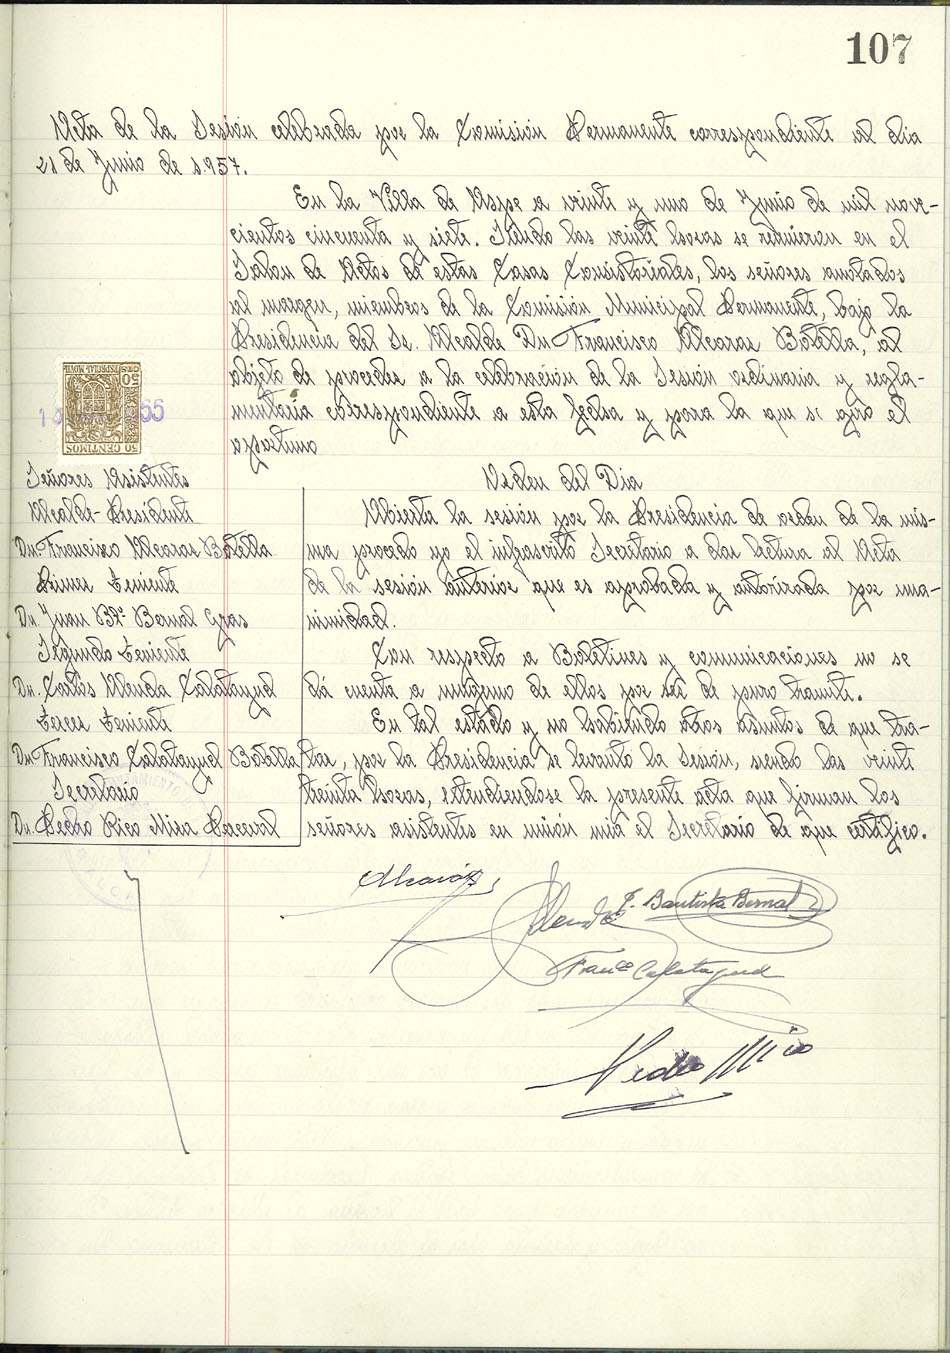 107
Acta de la Sesión celebrada por la Comisión Permanente correspondiente al dia
21 de Junio de 1.957.
En la Villa de Aspe a veinte y uno de Junio de mil nove-
cientos cincuenta y siete. Siendo las veinte horas se reunieron en el
Salon de Actos de estas Casas Consistoriales, los señores anotados
al margen, miembros de la Comisión Municipal Permanente, bajo la
Presidencia del Sr. Alcalde Dn. Francisco Alcaraz Botella, al
objeto de proceder a la celebración de la Sesión ordinaria y regla-
mentaria correspondiente a esta fecha y para la que se giró el
oportuno
Orden del Dia
Abierta la sesión por la Presidencia de orden de la mis-
ma procedo yo el infrascrito Secretario a dar lectura al Acta
de la sesión anterior que es aprobada y autorizada por una-
nimidad.
Con respecto a Boletines y comunicaciones no se
dá cuenta a ninguno de ellos por ser de puro tramite.
En tal estado y no habiendo otros asuntos de que tra-
tar, por la Presidencia se levantó la Sesión, siendo las veinte
treinta horas, extendiendose la presente acta que firman los
señores asistentes en unión mia el Secretario de que certifico.
50 CENTIMOS
ESPECIAL MOVIL
50 CTS
55
Señores Asistentes
Alcalde-Presidente
Dn. Francisco Alcaraz Botella
Primer Teniente
Dn. Juan Btª. Bernal Gras
Segundo Teniente
Dn. Carlos Alenda Calatayud
Tercer Teniente
Dn. Francisco Calatayud Botella
Secretario
Dn. Pedro Rico Mira Perceval
Alcaraz
Alenda
J. Bautista Bernal
Franco Calatayud
Pedro Rico